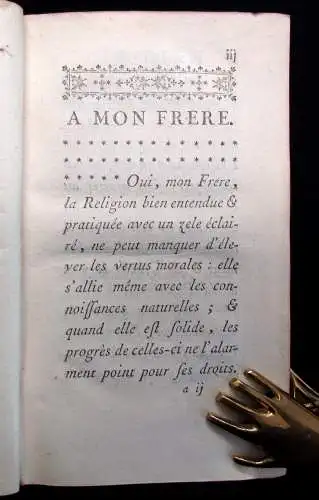 iij
A MON FRERE.
* * * * * * * * * * * *
* * * * * * * * * * * *
* * * * * Oui, mon Frere,
la Religion bien entendue &
pratiquée avec un zele éclai-
ré, ne peut manquer d'éle-
ver les vertus morales : elle
s'allie même avec les con-
noiſſances naturelles ; &
quand elle eſt ſolide, les
progrès de celles-ci ne l'alar-
ment point pour ſes droits.
a ij